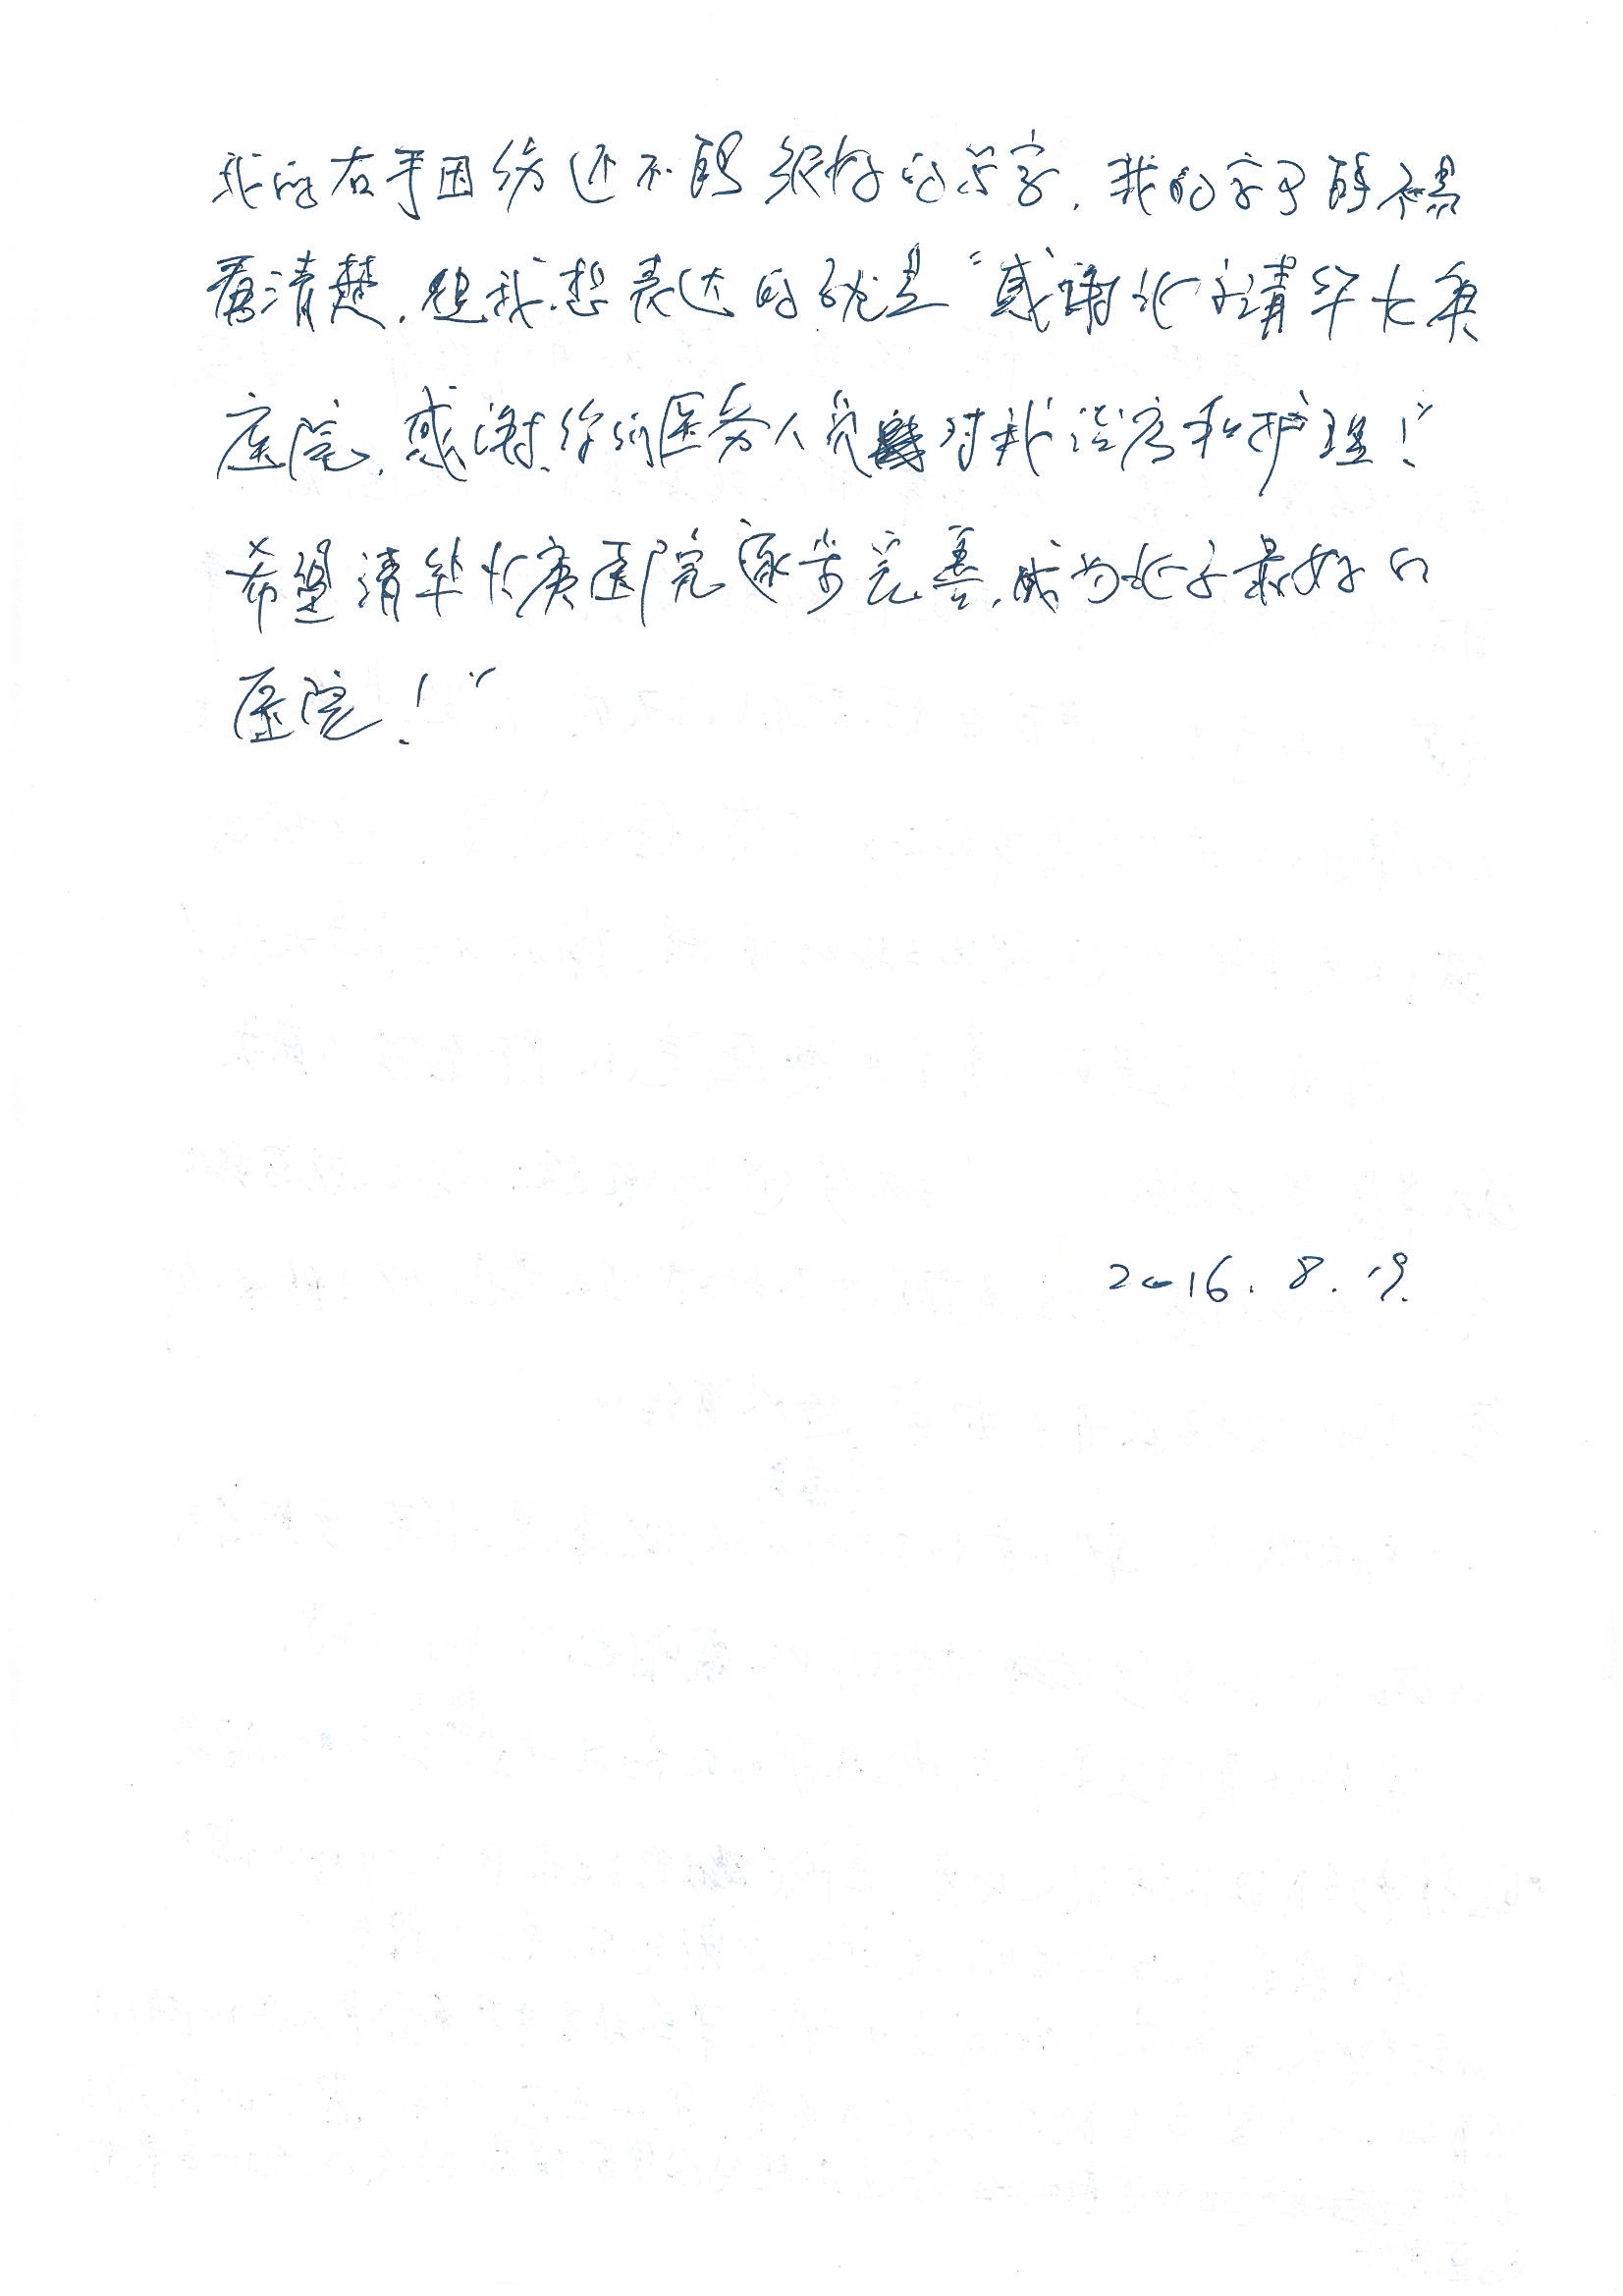 我的右手因伤还不能很好的写字,我的字可能不易
看清楚,但我想表达的就是“感谢北京清华长庚
医院,感谢你们医务人员对我治疗和护理!”
希望清华长庚医院逐步完善,成为北京最好的
医院!”
2016.8.19.